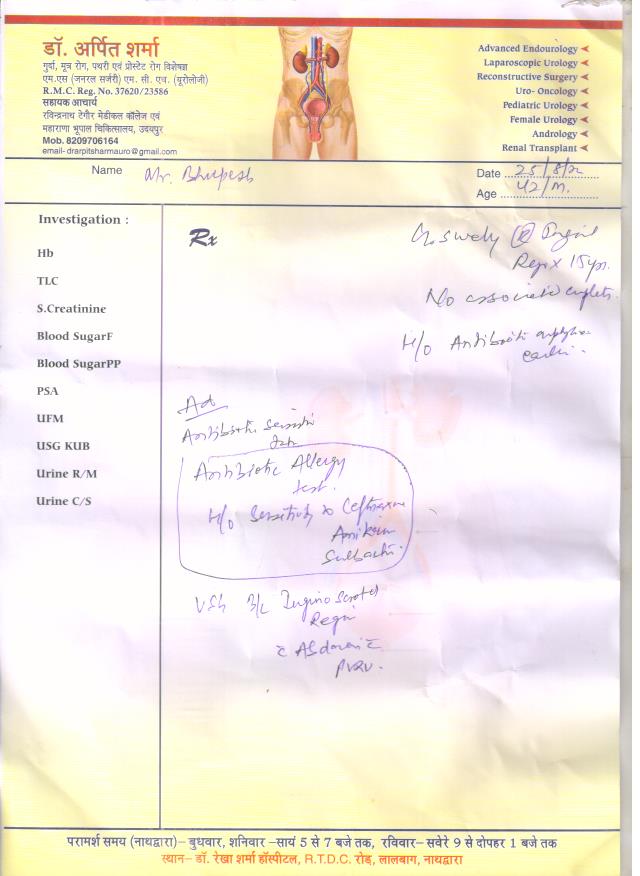 डॉ. अर्पित शर्मा
गुर्दा, मूत्र रोग, पथरी एवं प्रोस्टेट रोग विशेषज्ञ
एम.एस (जनरल सर्जरी) एम. सी. एच. (यूरोलोजी)
R.M.C. Reg. No. 37620/23586
सहायक आचार्य
रविन्द्रनाथ टेगौर मेडीकल कॉलेज एवं
महाराणा भूपाल चिकित्सालय, उदयपुर
Mob. 8209706164
email- drarpitsharmauro@gmail.com
Advanced Endourology
Laparoscopic Urology
Reconstructive Surgery
Uro- Oncology
Pediatric Urology
Female Urology
Andrology
Renal Transplant
Name Mr. Bhupesh
Date 25/8/22
Age 42/M.
Investigation :
Hb
TLC
S.Creatinine
Blood SugarF
Blood SugarPP
PSA
UFM
USG KUB
Urine R/M
Urine C/S
Rx
Region x 15 yrs.
No associated
H/o Antibiotic
Adv
Antibiotic
Antibiotic Allergy
test.
H/o Sensitivity to Ceftriaxone
Amikacin
Sulbactam.
USG B/L Inguino Scrotal
Region
PVRU.
परामर्श समय (नाथद्वारा)– बुधवार, शनिवार –सायं 5 से 7 बजे तक, रविवार– सवेरे 9 से दोपहर 1 बजे तक
स्थान– डॉ. रेखा शर्मा हॉस्पीटल, R.T.D.C. रोड़, लालबाग, नाथद्वारा